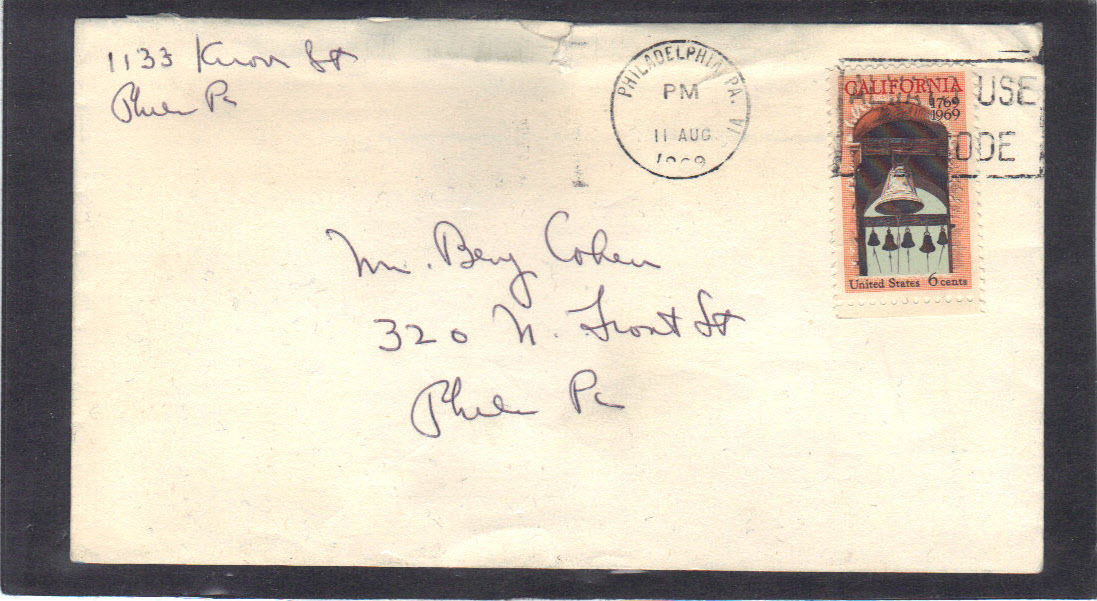 1133 Knorr St
Phila Pa
PHILADELPHIA, PA.
PM
11 AUG
1969
USE
CODE
CALIFORNIA
1769
1969
United States 6 cents
Mr. Beny Cohen
320 N. Front St
Phila Pa